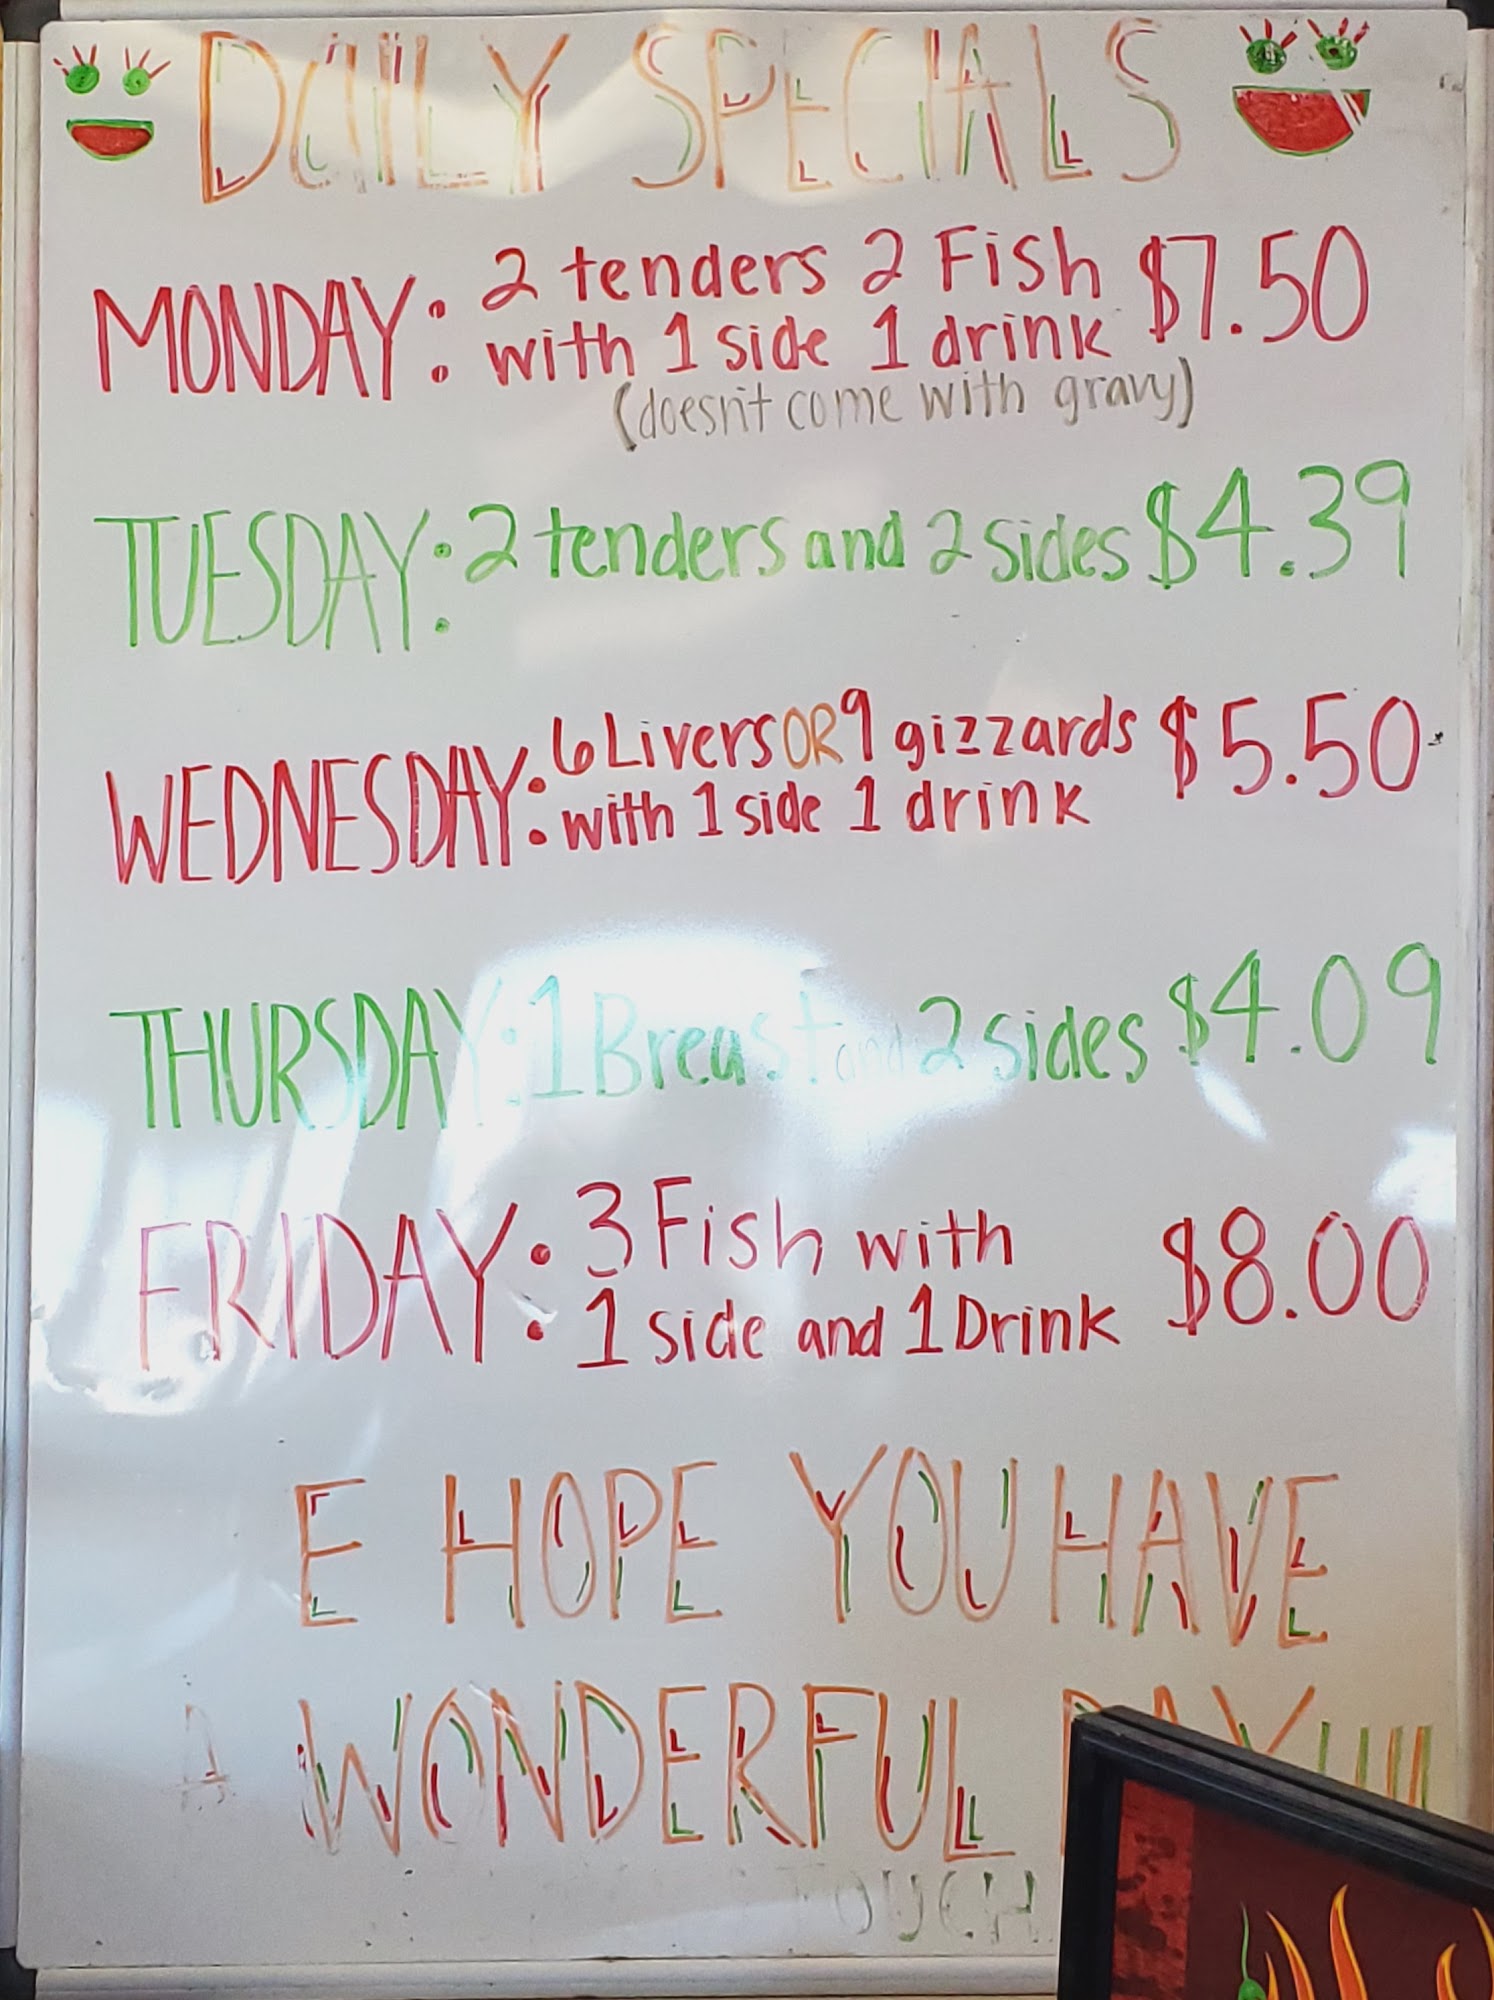 DaILY SPECIALS
MONDAY: 2 tenders 2 Fish $7.50
with 1 side 1 drink
(doesn't come with gravy)
TUESDAY: 2 tenders and 2 sides $4.39
WEDNESDAY: 6 Livers OR 9 gizzards $5.50
with 1 side 1 drink
THURSDAY: 1 Breast and 2 sides $4.09
FRIDAY: 3 Fish with $8.00
1 side and 1 Drink
E HOPE YOU HAVE
A WONDERFUL DAY!!!!